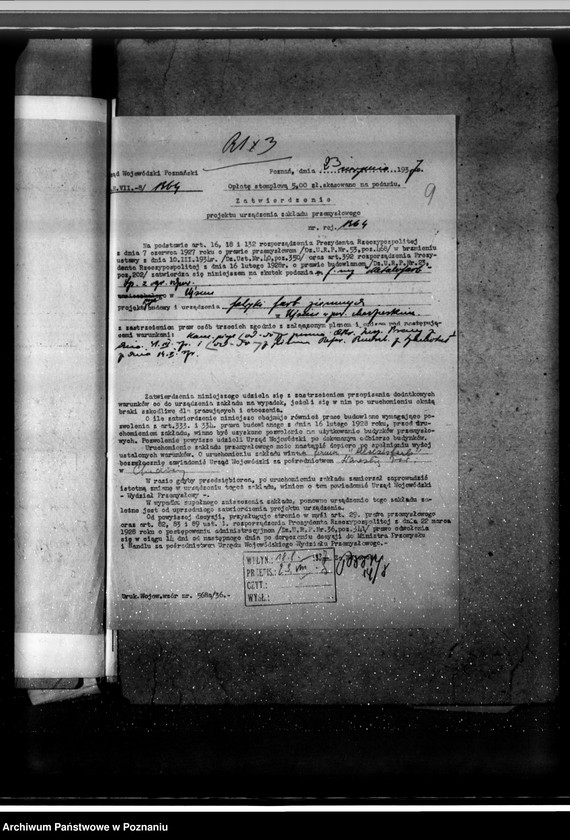 Rlx3
Wojewódzki Poznański
Poznań, dnia 23 sierpnia 1937r.
VII.-8/ 1864
9
Opłatę stemplową 5,00 zł. skasowano na podaniu.
Zatwierdzenie
projektu urządzenia zakładu przemysłowego
nr. rej. 1864
Na podstawie art. 16, 18 i 132 rozporządzenia Prezydenta Rzeczypospolitej
z dnia 7 czerwca 1927 roku o prawie przemysłowem /Dz.U.R.P.Nr.53,poz.468/ w brzmieniu
ustawy z dnia 10.III.1934r. /Dz.Ust.Nr.40,poz.350/ oraz art.392 rozporządzenia Prezy-
denta Rzeczypospolitej z dnia 16 lutego 1928r. o prawie budowlanem /Dz.U.R.P.Nr.23,
poz.202/ zatwierdza się niniejszem na skutek podania
Sp. z ogr. odpow.
w Ujściu
projekt budowy i urządzenia fabryki farb ziemnych
w Ujściu
z zastrzeżeniem praw osób trzecich zgodnie z załączonym planem i opisem pod następują-
cemi warunkami:
Zatwierdzenia niniejszego udziela się z zastrzeżeniem przepisania dodatkowych
warunków co do urządzenia zakładu na wypadek, jeżeli się w nim po uruchomieniu okażą
braki szkodliwe dla pracujących i otoczenia.
O ile zatwierdzenie niniejsze obejmuje również prace budowlane wymagające po-
zwolenia z art.333. i 334. prawa budowlanego z dnia 16 lutego 1928 roku, przed uru-
chomieniem zakładu, winno być uzyskane pozwolenie na użytkowanie budynków przemysło-
wych. Pozwolenie powyższe udzieli Urząd Wojewódzki po dokonanym odbiorze budynków.
Uruchomienie zakładu przemysłowego może nastąpić dopiero po spełnieniu wyżej
ustalonych warunków. O uruchomieniu zakładu winna firma
bezzwłocznie zawiadomić Urząd Wojewódzki za pośrednictwem Starosty Pow.
w Chodzieży
W razie gdyby przedsiębiorca, po uruchomieniu zakładu zamierzał zaprowadzić
istotną zmianę w urządzeniu tegoż zakładu, winien o tem powiadomić Urząd Wojewódzki
- Wydział Przemysłowy -.
W wypadku zupełnego zniszczenia zakładu, ponowne urządzenie tego zakładu za-
leżne jest od uprzedniego zatwierdzenia projektu urządzenia.
Od powyższej decyzji, przysługuje stronie w myśl art. 29. prawa przemysłowego
oraz art. 82, 83 i 89 ust.1. rozporządzenia Prezydenta Rzeczypospolitej z dnia 22 marca
1928 roku o postępowaniu administracyjnem /Dz.U.R.P.Nr.36,poz.341/ prawo odwołania
się w ciągu 14 dni od następnego dnia po doręczeniu decyzji do Ministra Przemysłu
i Handlu za pośrednictwem Urzędu Wojewódzkiego Wydziału Przemysłowego.-
WPŁYN.:
PRZEPIS.: 23 VIII
CZYT.:
WYSŁ.:
14/8
Druk.Wojew.wzór nr. 568a/36.-
Archiwum Państwowe w Poznaniu